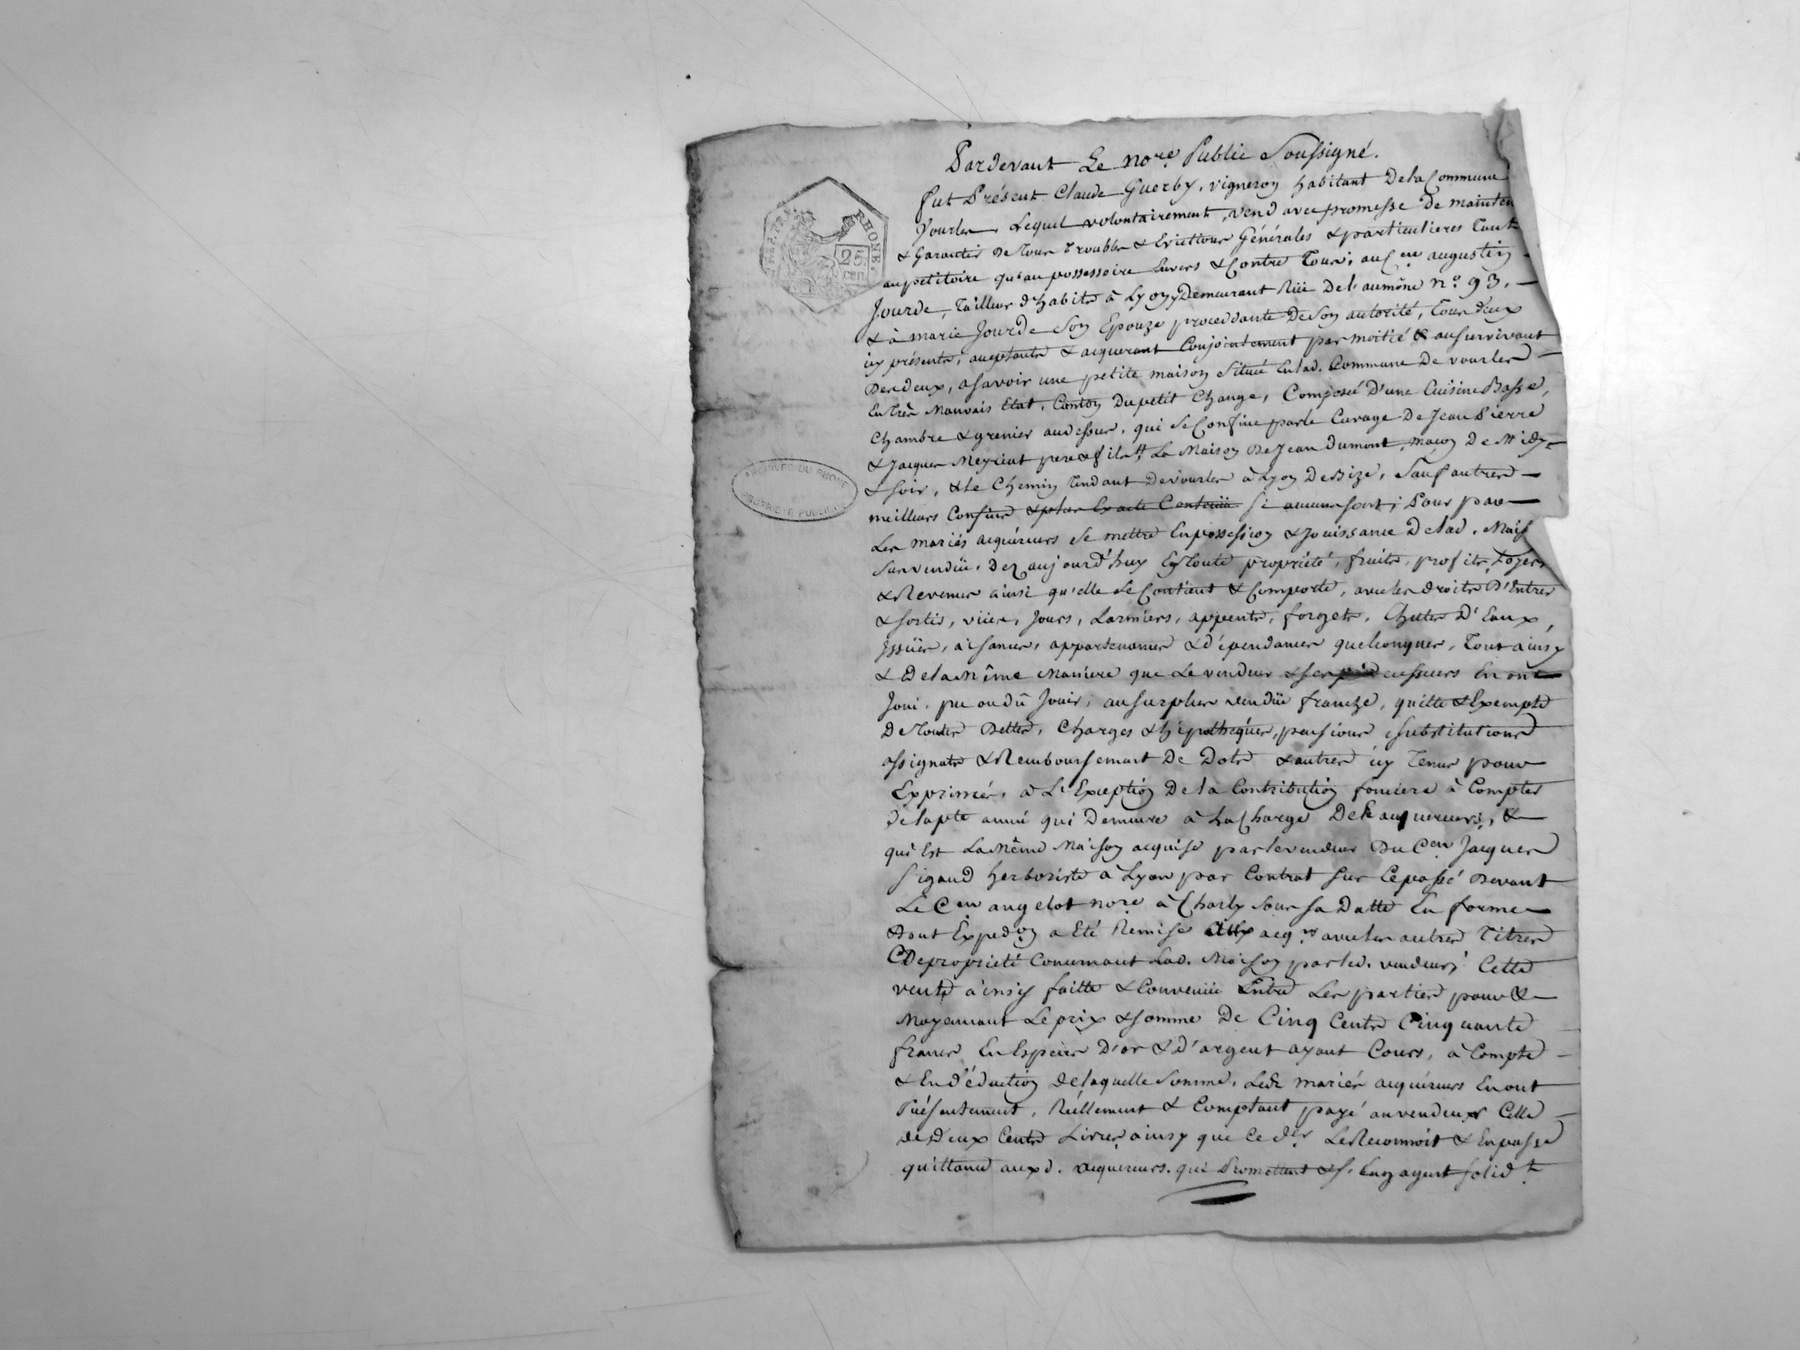 Pardevant Le no.re Public Soussigné.
fut Présent Claude Guerby, vigneron habitant De la Commune
Vourles, Lequel volontairement, vend avec promesse de mainten
& Garantir De Tous Troubles & Evictions Générales & particulieres Tant
au petitoire qu'au possessoire Envers & Contre Tous; au C.en augustin
Jourde, Tailleur d'habits à Lyon, Demeurant Rüe De l'aumône n.o 93.
& à marie Jourde Son Epouze procedante De Son autorité, Tous deux
icy présents, acceptants & acquerant Conjointement par moitié & au Survivant
Des deux, a Savoir une petite maison Située En lad. Commune De vourles
En Très Mauvais Etat, Canton Du petit Change, Composé D'une Cuisine Basse,
Chambre & grenier au dessus, qui Se Confine par le Curage De Jean Pierre
& Jacques Meyriat pere & fils, La Maison De Jean Dumont, maçon De Midy
& Soir, & le Chemin Tendant De vourles à Lyon De Bize, Sauf autres
meilleurs Confins & plus Exacte Contenüe Si aucuns sont; Pour par
Les mariés acquéreurs Se mettre En possession & Jouissance De lad. Mais
Sus vendüe, Dez aujourd'huy En Toute propriété, fruits, profits, Loyers
& Revenus ainsi qu'elle Se Contient & Comporte, avec les droits D'Entrer
& Sortir, vües, Jours, Larmiers, appents, forgets, Chuttes D'Eaux,
Issües, aisances, appartenances & dépendances quelconques, Tout ainsy
& De la Même Maniere que Le vendeur & Ses prédecesseurs En ont
Joui, pu ou dû Jouir, au Surplus vendüe franche, quitte & Exempte
De Toutes Dettes, Charges & hipothéques, pensions, substitutions
assignats & Remboursement De Dots & autres icy Tenus pour
Exprimés, à L'Exception De la Contribution fonciere à Compter
de la p.te année qui Demeure à La Charge Des acquereurs, &
qui Est La Même Maison acquise par le vendeur Du C.en Jacques
Sigaud herboriste à Lyon par Contrat Sur Ce passé Devant
Le C.en angelot no.re à Charly Sous Sa Datte En forme
Dont Exped.on a Eté Remise aux acq.rs avec les autres Titres
De propriété Concernant Lad. Maison par led. vendeur; Cette
vente ainsy faitte & Convenüe Entre Les parties pour &
Moyennant Le prix & somme De Cinq Cents Cinquante
francs En Espèces D'or & D'argent ayant Cours, à Compte
& En déduction de laquelle Somme, Lesd. mariés acquéreurs En ont
Présentement, Réellement & Comptant payé au vendeur Celle
de Deux Cents Livres ainsy que Ce d.er Le Reconnoit & En passe
quittance aux d. acquereurs, qui Promettent & S'Engagent Solid.t
RHONE.
25.
cen.
ARCHIVES DU RHONE
PROPRIETE PUBLIQUE